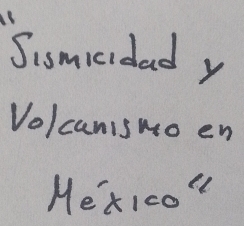 "Sismicidad y
Volcanismo en
México"